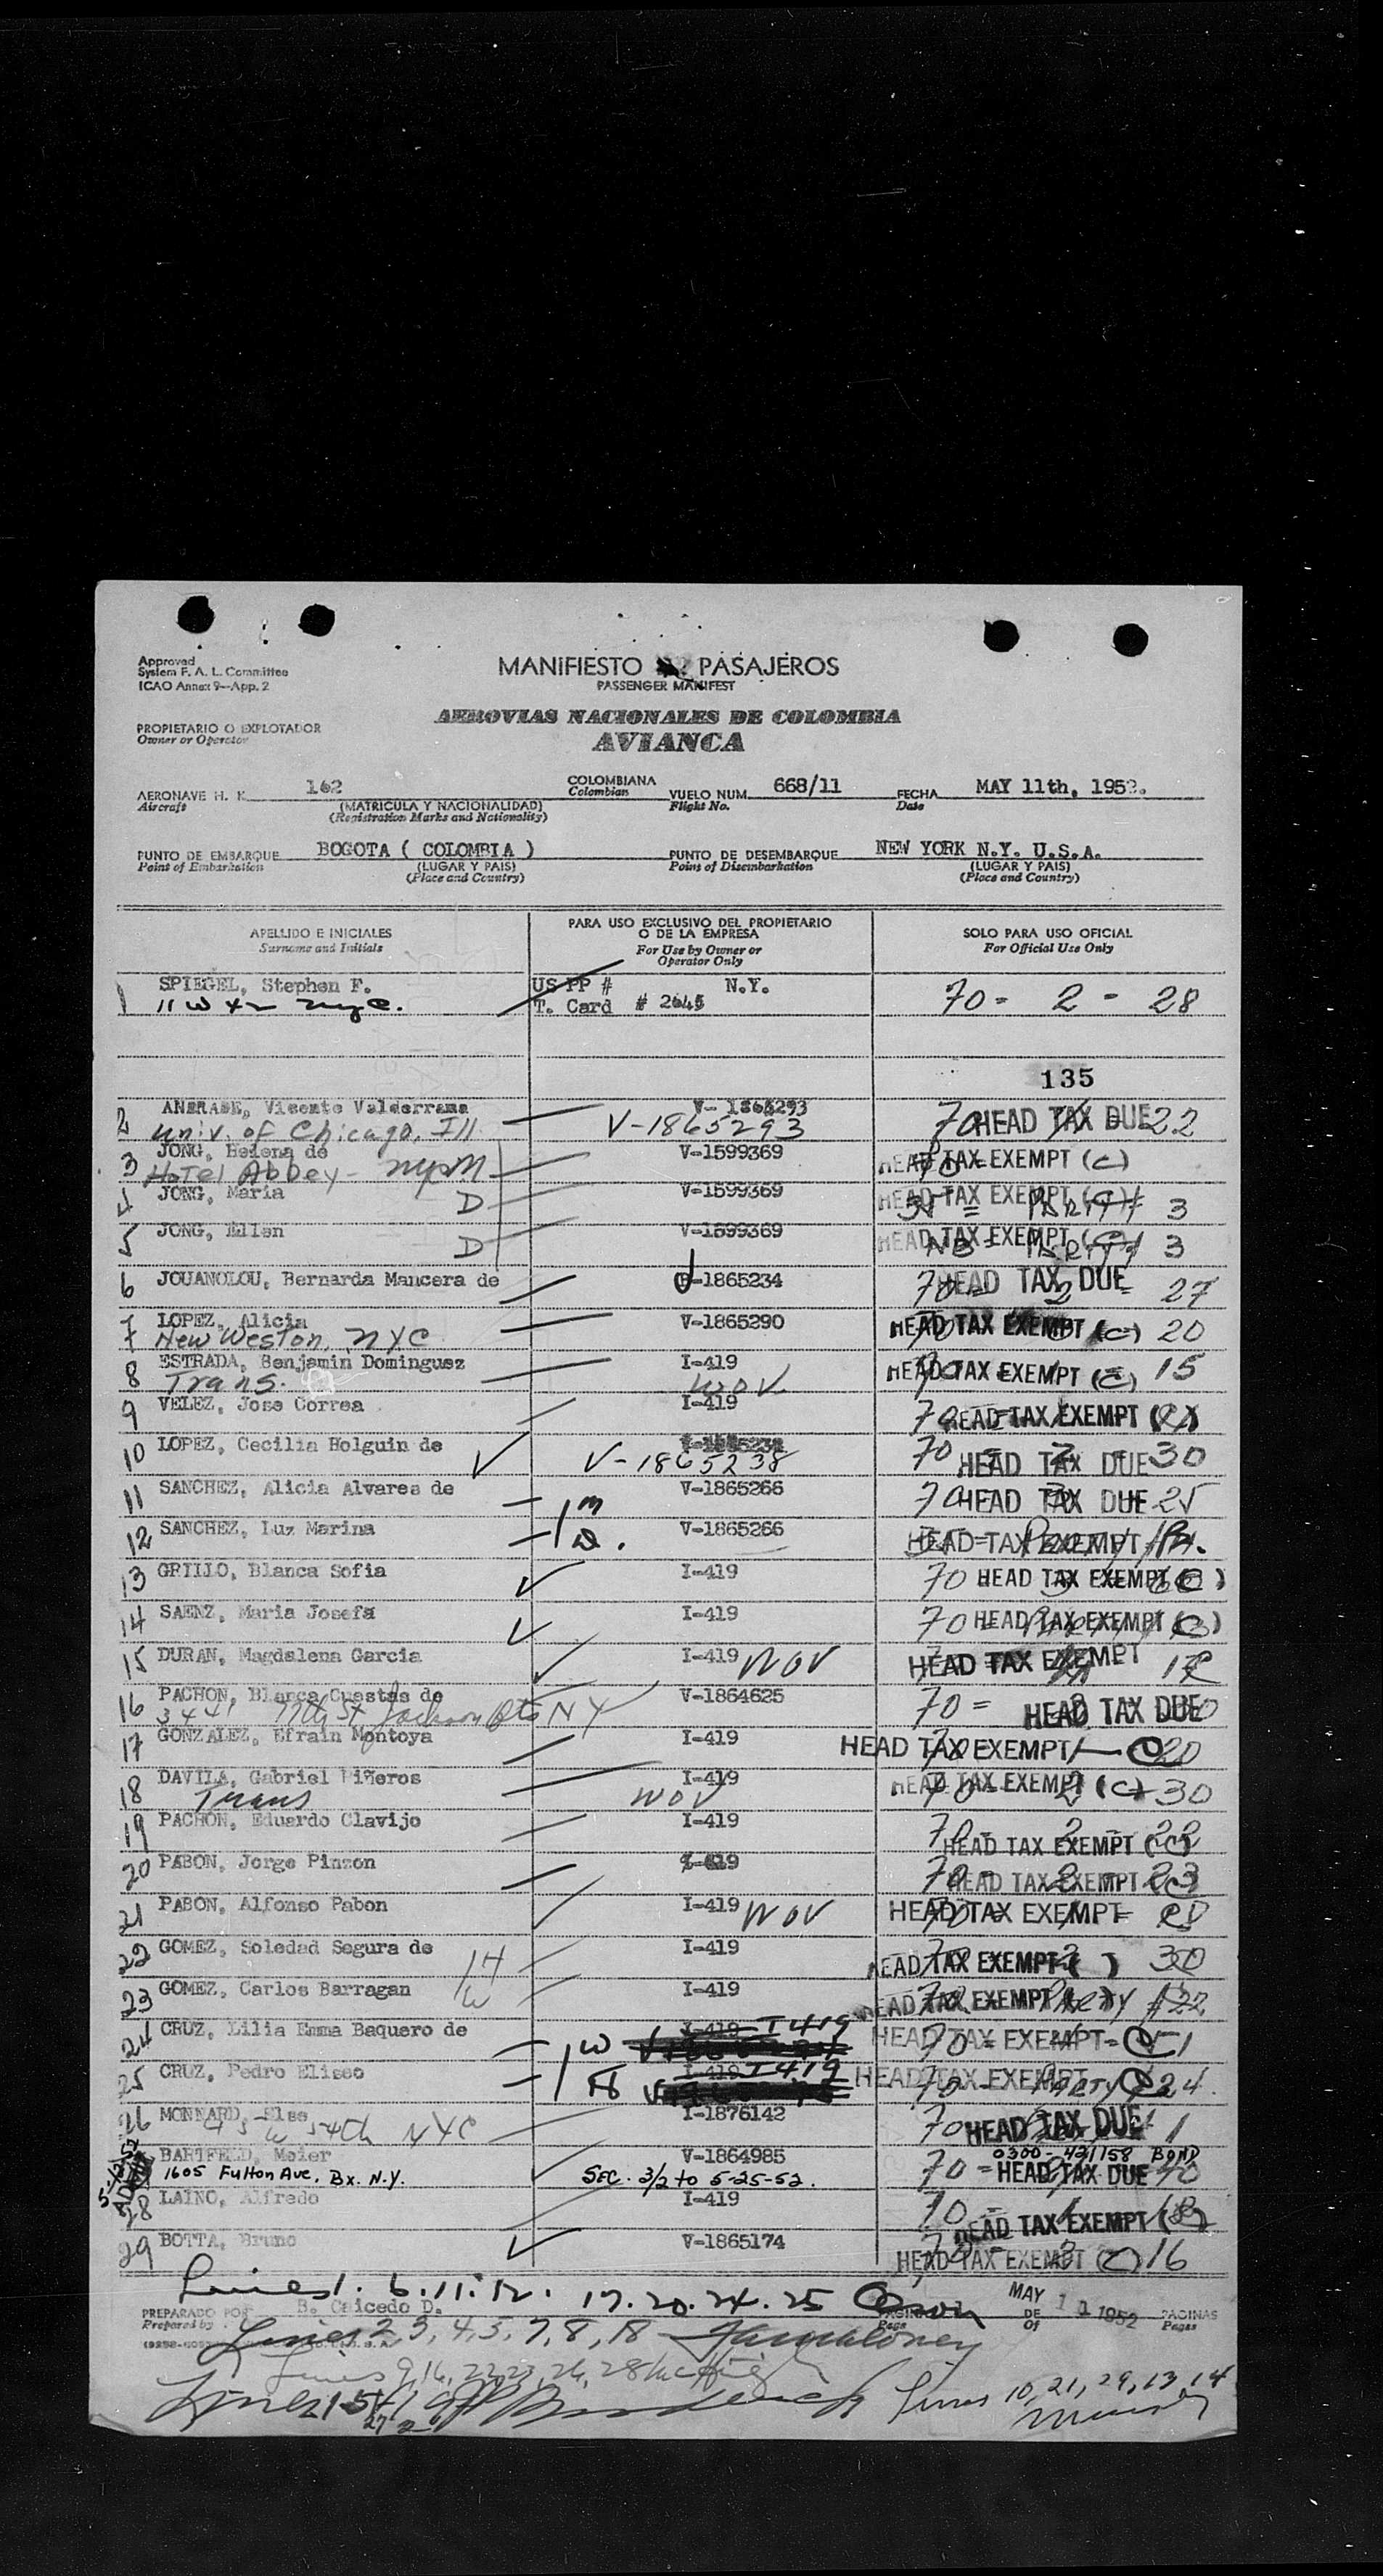 Approved
System F. A. L. Committee
ICAO Annex 9-App. 2
MANIFIESTO PASAJEROS
PASSENGER MANIFEST
PROPIETARIO O EXPLOTADOR
Owner or Operator
AEROVIAS NACIONALES DE COLOMBIA
AVIANCA
AERONAVE H. K. 162 COLOMBIANA VUELO NUM. 668/11 FECHA MAY 11th, 1952.
Aircraft (MATRICULA Y NACIONALIDAD) Colombian Flight No. Date
(Registration Marks and Nationality)
PUNTO DE EMBARQUE BOGOTA ( COLOMBIA ) PUNTO DE DESEMBARQUE NEW YORK N.Y. U.S.A.
Point of Embarkation (LUGAR Y PAIS) Point of Disembarkation (LUGAR Y PAIS)
(Place and Country) (Place and Country)
APELLIDO E INICIALES PARA USO EXCLUSIVO DEL PROPIETARIO O DE LA EMPRESA SOLO PARA USO OFICIAL
Surname and Initials For Use by Owner or Operator Only For Official Use Only
1 SPIEGEL, Stephen F. US PP # N.Y. 70 - 2 - 28
11 W 42 nyc. T. Card # 2645
135
2 ANDRADE, Vicente Valderrama V- 1865293 70 HEAD TAX DUE 22
Univ. of Chicago, Ill V-1865293
3 JONG, Helena de V-1599369 HEAD TAX EXEMPT (C)
Hotel Abbey - nyc M
4 JONG, Maria D V-1599369 HEAD TAX EXEMPT (C) 3
5 JONG, Ellen D V-1599369 HEAD TAX EXEMPT (C) 3
6 JOUANOLOU, Bernarda Mancera de -1865234 70 HEAD TAX DUE 27
7 LOPEZ, Alicia V-1865290 HEAD TAX EXEMPT (C) 20
New Weston, NYC
8 ESTRADA, Benjamin Dominguez I-419 HEAD TAX EXEMPT (C) 15
Trans. WOV
9 VELEZ, Jose Correa I-419 70 HEAD TAX EXEMPT
10 LOPEZ, Cecilia Holguin de V-1865238 70 HEAD TAX DUE 30
11 SANCHEZ, Alicia Alvares de m V-1865266 70 HEAD TAX DUE 25
12 SANCHEZ, Luz Marina D. V-1865266 HEAD TAX EXEMPT
13 GRILLO, Blanca Sofia I-419 70 HEAD TAX EXEMPT (C)
14 SAENZ, Maria Josefa I-419 70 HEAD TAX EXEMPT (C)
15 DURAN, Magdalena Garcia I-419 WOV HEAD TAX EXEMPT
16 PACHON, Blanca Cuestas de V-1864625 70 = HEAD TAX DUE
NY
17 GONZALEZ, Efrain Montoya I-419 HEAD TAX EXEMPT C 20
18 DAVILA, Gabriel Piñeros I-419 HEAD TAX EXEMPT (C) 30
Trans WOV
19 PACHON, Eduardo Clavijo I-419 70 - 2 - 22 HEAD TAX EXEMPT (C)
20 PABON, Jorge Pinzon I-419 70 - 2 - 23 HEAD TAX EXEMPT (C)
21 PABON, Alfonso Pabon I-419 WOV HEAD TAX EXEMPT
22 GOMEZ, Soledad Segura de I-419 HEAD TAX EXEMPT ( ) 30
23 GOMEZ, Carlos Barragan W I-419 HEAD TAX EXEMPT PARTY #22
24 CRUZ, Lilia Emma Baquero de W I-419 I 419 HEAD TAX EXEMPT
25 CRUZ, Pedro Eliseo I-419 I 419 HEAD TAX EXEMPT PARTY 24
26 MONNARD, Else I-1876142 70 HEAD TAX DUE 1
W 54th NYC
BARTFELD, Meier V-1864985 0300-421158 BOND
1605 Fulton Ave. Bx. N.Y. SEC. 3/2 to 5-25-52. 70 = HEAD TAX DUE 40
28 LAINO, Alfredo I-419 70 HEAD TAX EXEMPT
29 BOTTA, Bruno V-1865174 HEAD TAX EXEMPT (C) 16
Lines 1. 6. 11. 12. 17. 20. 24. 25
PREPARADO POR B. Caicedo D. MAY 11 1952 DE PAGINAS
Prepared by Page Of Pages
Lines 2, 3, 4, 5, 7, 8, 18
Lines 9, 16, 22, 23, 26, 28
Lines 15 Lines 10, 21, 29, 13, 14
27